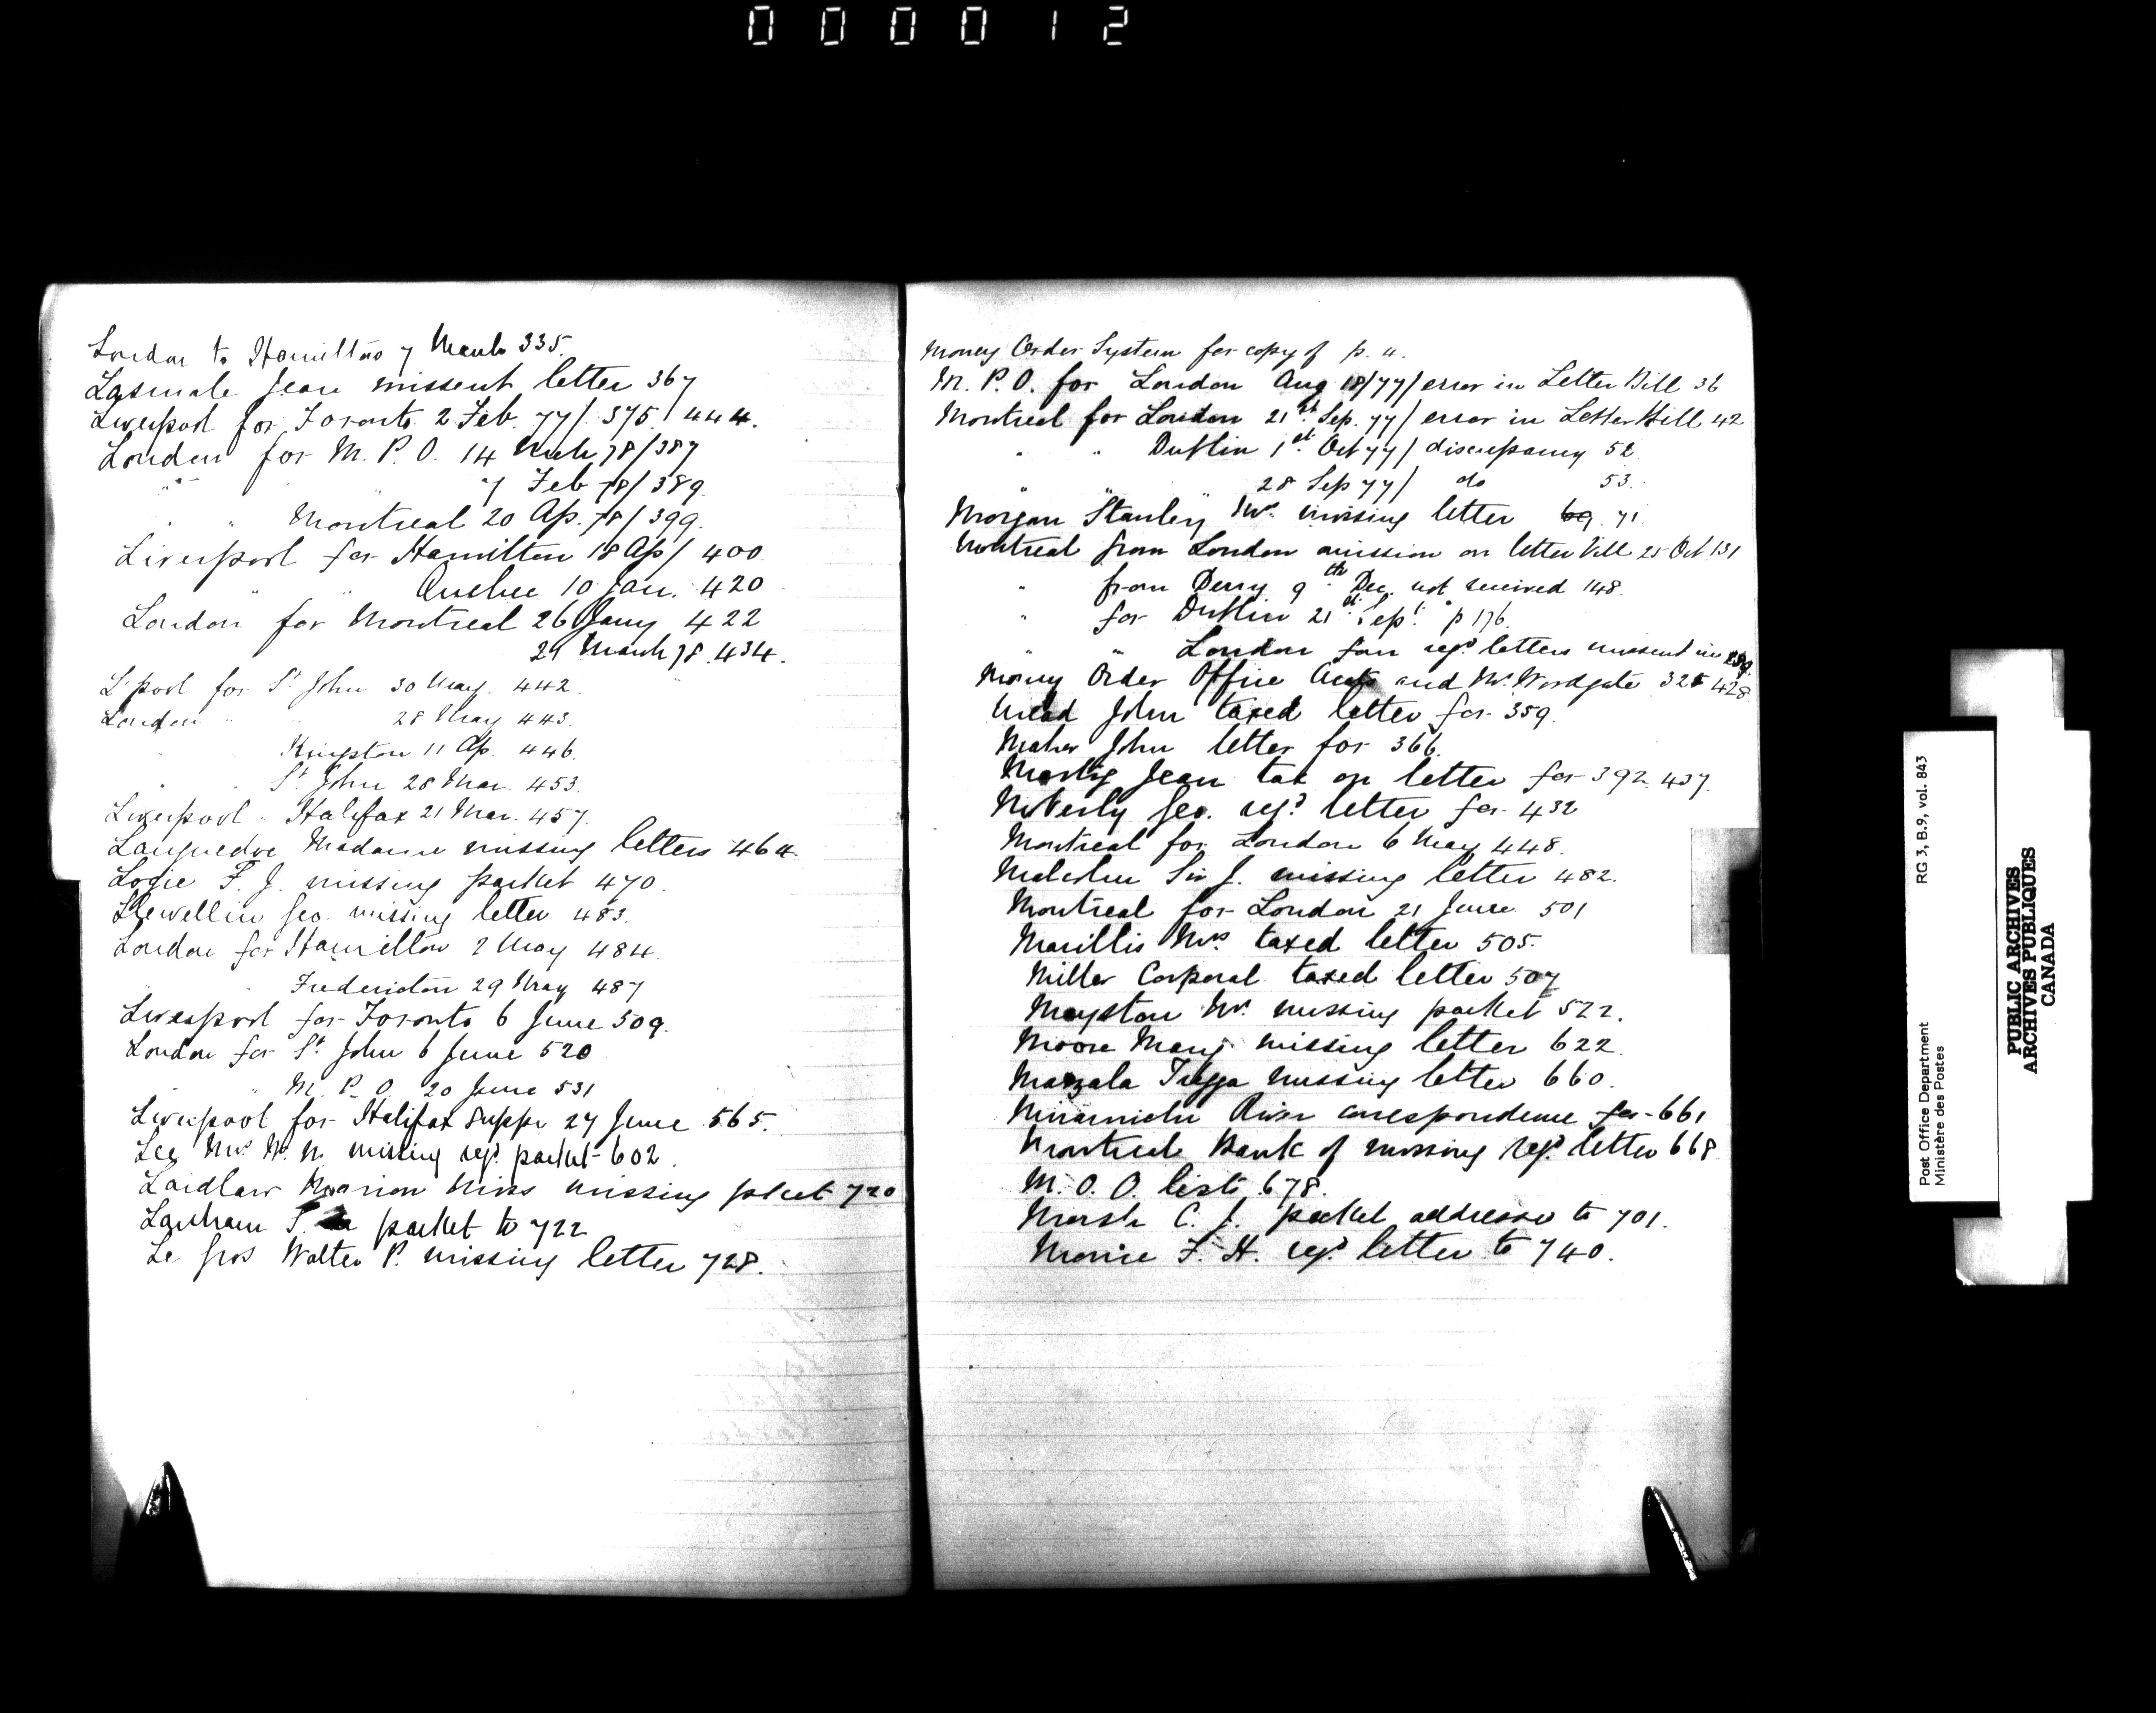 000012
London to Hamilton 7 March 335
Lasmale Jean missent letter 367
Liverpool for Toronto 2 Feb. 77/. 375. 444.
London for M. P. O. 14 Mch 78/387
" " 7 Feb 78/389
" " Montreal 20 Ap. 78/399.
Liverpool for Hamilton 18 Ap/ 400
" " Quebec 10 Jan. 420
London for Montreal 26 Jany 422
29 March 78. 434.
L'pool for St John 30 May. 442
London " " 28 May 443.
Kingston 11 Ap. 446.
St John 28 Mar. 453.
Liverpool " Halifax 21 Mar. 457.
Madame missing letters 464
Logie F. J. missing packet 470.
Llewellin Geo. missing letter 483.
London for Hamilton 2 May 484.
Fredericton 29 May 487
Liverpool for Toronto 6 June 509.
London for St John 6 June 520
" " M. P. O. 20 June 531
Liverpool for Halifax Suppr 27 June 565.
Lee missing regd packet 602.
Laidlaw Marion Miss missing packet 720
Lanham T. packet to 722
Le Gros Walter P. missing letter 728.
Money Order System for copy of p.
M. P. O. for London Aug 18/77/ error in Letter Bill 36
Montreal for London 21st Sep. 77/ error in Letter Bill 42
" " Dublin 1st Oct 77/ discrepancy 52
" " " 28 Sep 77/ do 53.
Morgan Stanley Mr. missing letter 69. 71.
Montreal from London omission on letter bill 25 Oct 131
" from Derry 9th Dec. not received 148.
" for Dublin 21st Sept. p 176.
" " London regd letters missent in
Money Order Office and Mr. Woodgate 325 428
Mead John taxed letter for 359.
Maher John letter for 366.
Jean tax on letter for 392. 437.
Moberly Geo. regd letter for 432
Montreal for London 6 May 448.
Malcolm Sir J. missing letter 482.
Montreal for London 21 June 501
Marillis Mrs taxed letter 505.
Miller Corporal taxed letter 507
Mayston Mr. missing packet 522.
Moore Mary missing letter 622.
missing letter 660.
Miramichi River correspondence for 661
Montreal Bank of missing regd letter 668
M. O. O. lists 678.
Marsh C. J. packet addressed to 701.
F. H. regd letter to 740.
RG 3, B.9, vol. 843
Post Office Department
Ministère des Postes
PUBLIC ARCHIVES
ARCHIVES PUBLIQUES
CANADA